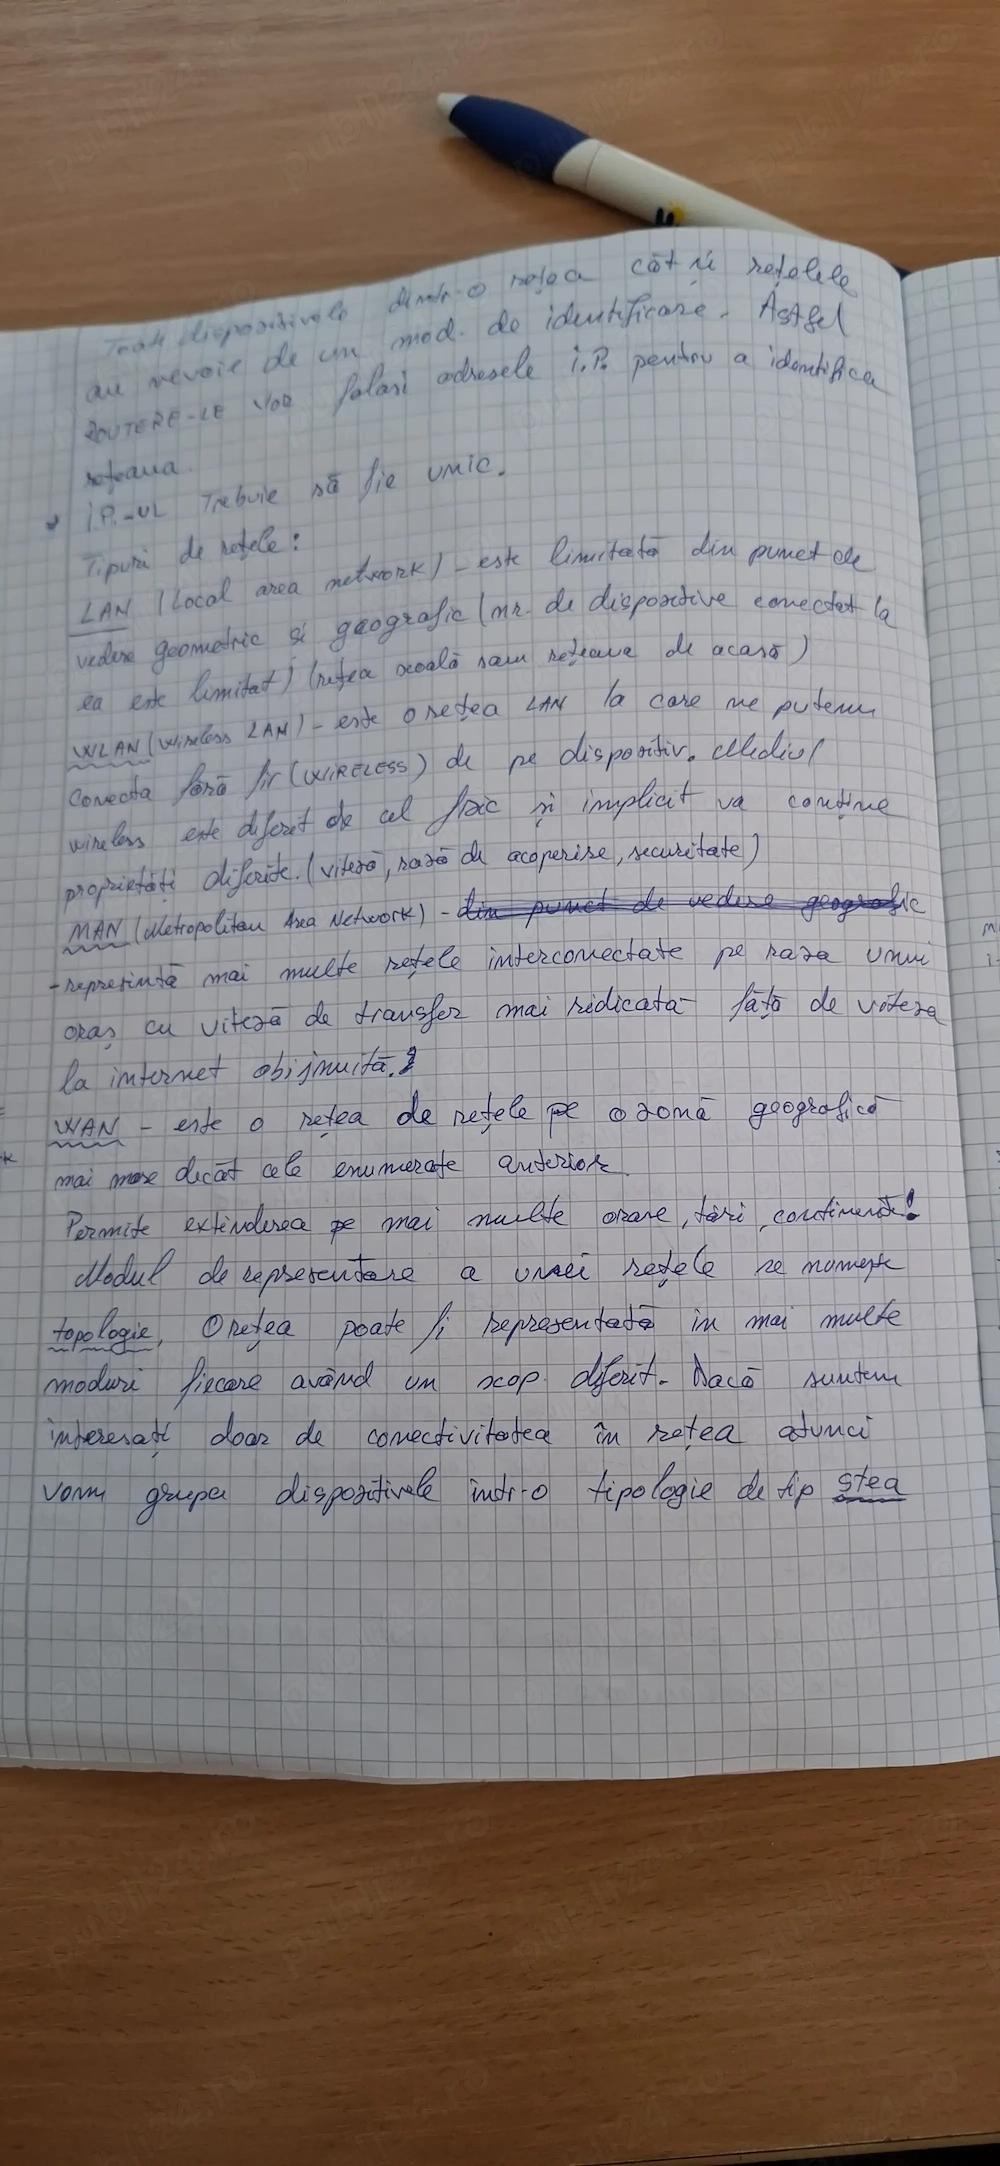 Toate dispozitivele dintr-o rețea cât și rețelele
au nevoie de un mod. de identificare. Astfel
ROUTERE-LE VOR folosi adresele i.P. pentru a identifica
rețeaua.
i.P.-UL Trebuie să fie unic.
Tipuri de rețele:
LAN (Local area network) - este limitată din punct de
vedere geometric și geografic (nr. de dispozitive conectat la
ea este limitat) (rețea școală sau rețeaua de acasă)
WLAN (Wireless LAN) - este o rețea LAN la care ne putem
conecta fără fir (WIRELESS) de pe dispozitiv. Mediul
wireless este diferit de cel fizic și implicit va conține
proprietăți diferite. (viteză, rază de acoperire, securitate)
MAN (Metropolitan Area Network) - din punct de vedere geografic
- reprezintă mai multe rețele interconectate pe raza unui
oraș cu viteză de transfer mai ridicată față de viteza
la internet obijnuită.
WAN - este o rețea de rețele pe o zonă geografică
mai mare decât cele enumerate anterior.
Permite extinderea pe mai multe orașe, țări, continente!
Modul de reprezentare a unei rețele se numește
topologie. O rețea poate fi reprezentată in mai multe
moduri fiecare având un scop diferit. Dacă suntem
interesați doar de conectivitatea în rețea atunci
vom grupa dispozitivele într-o tipologie de tip stea
publi24.ro